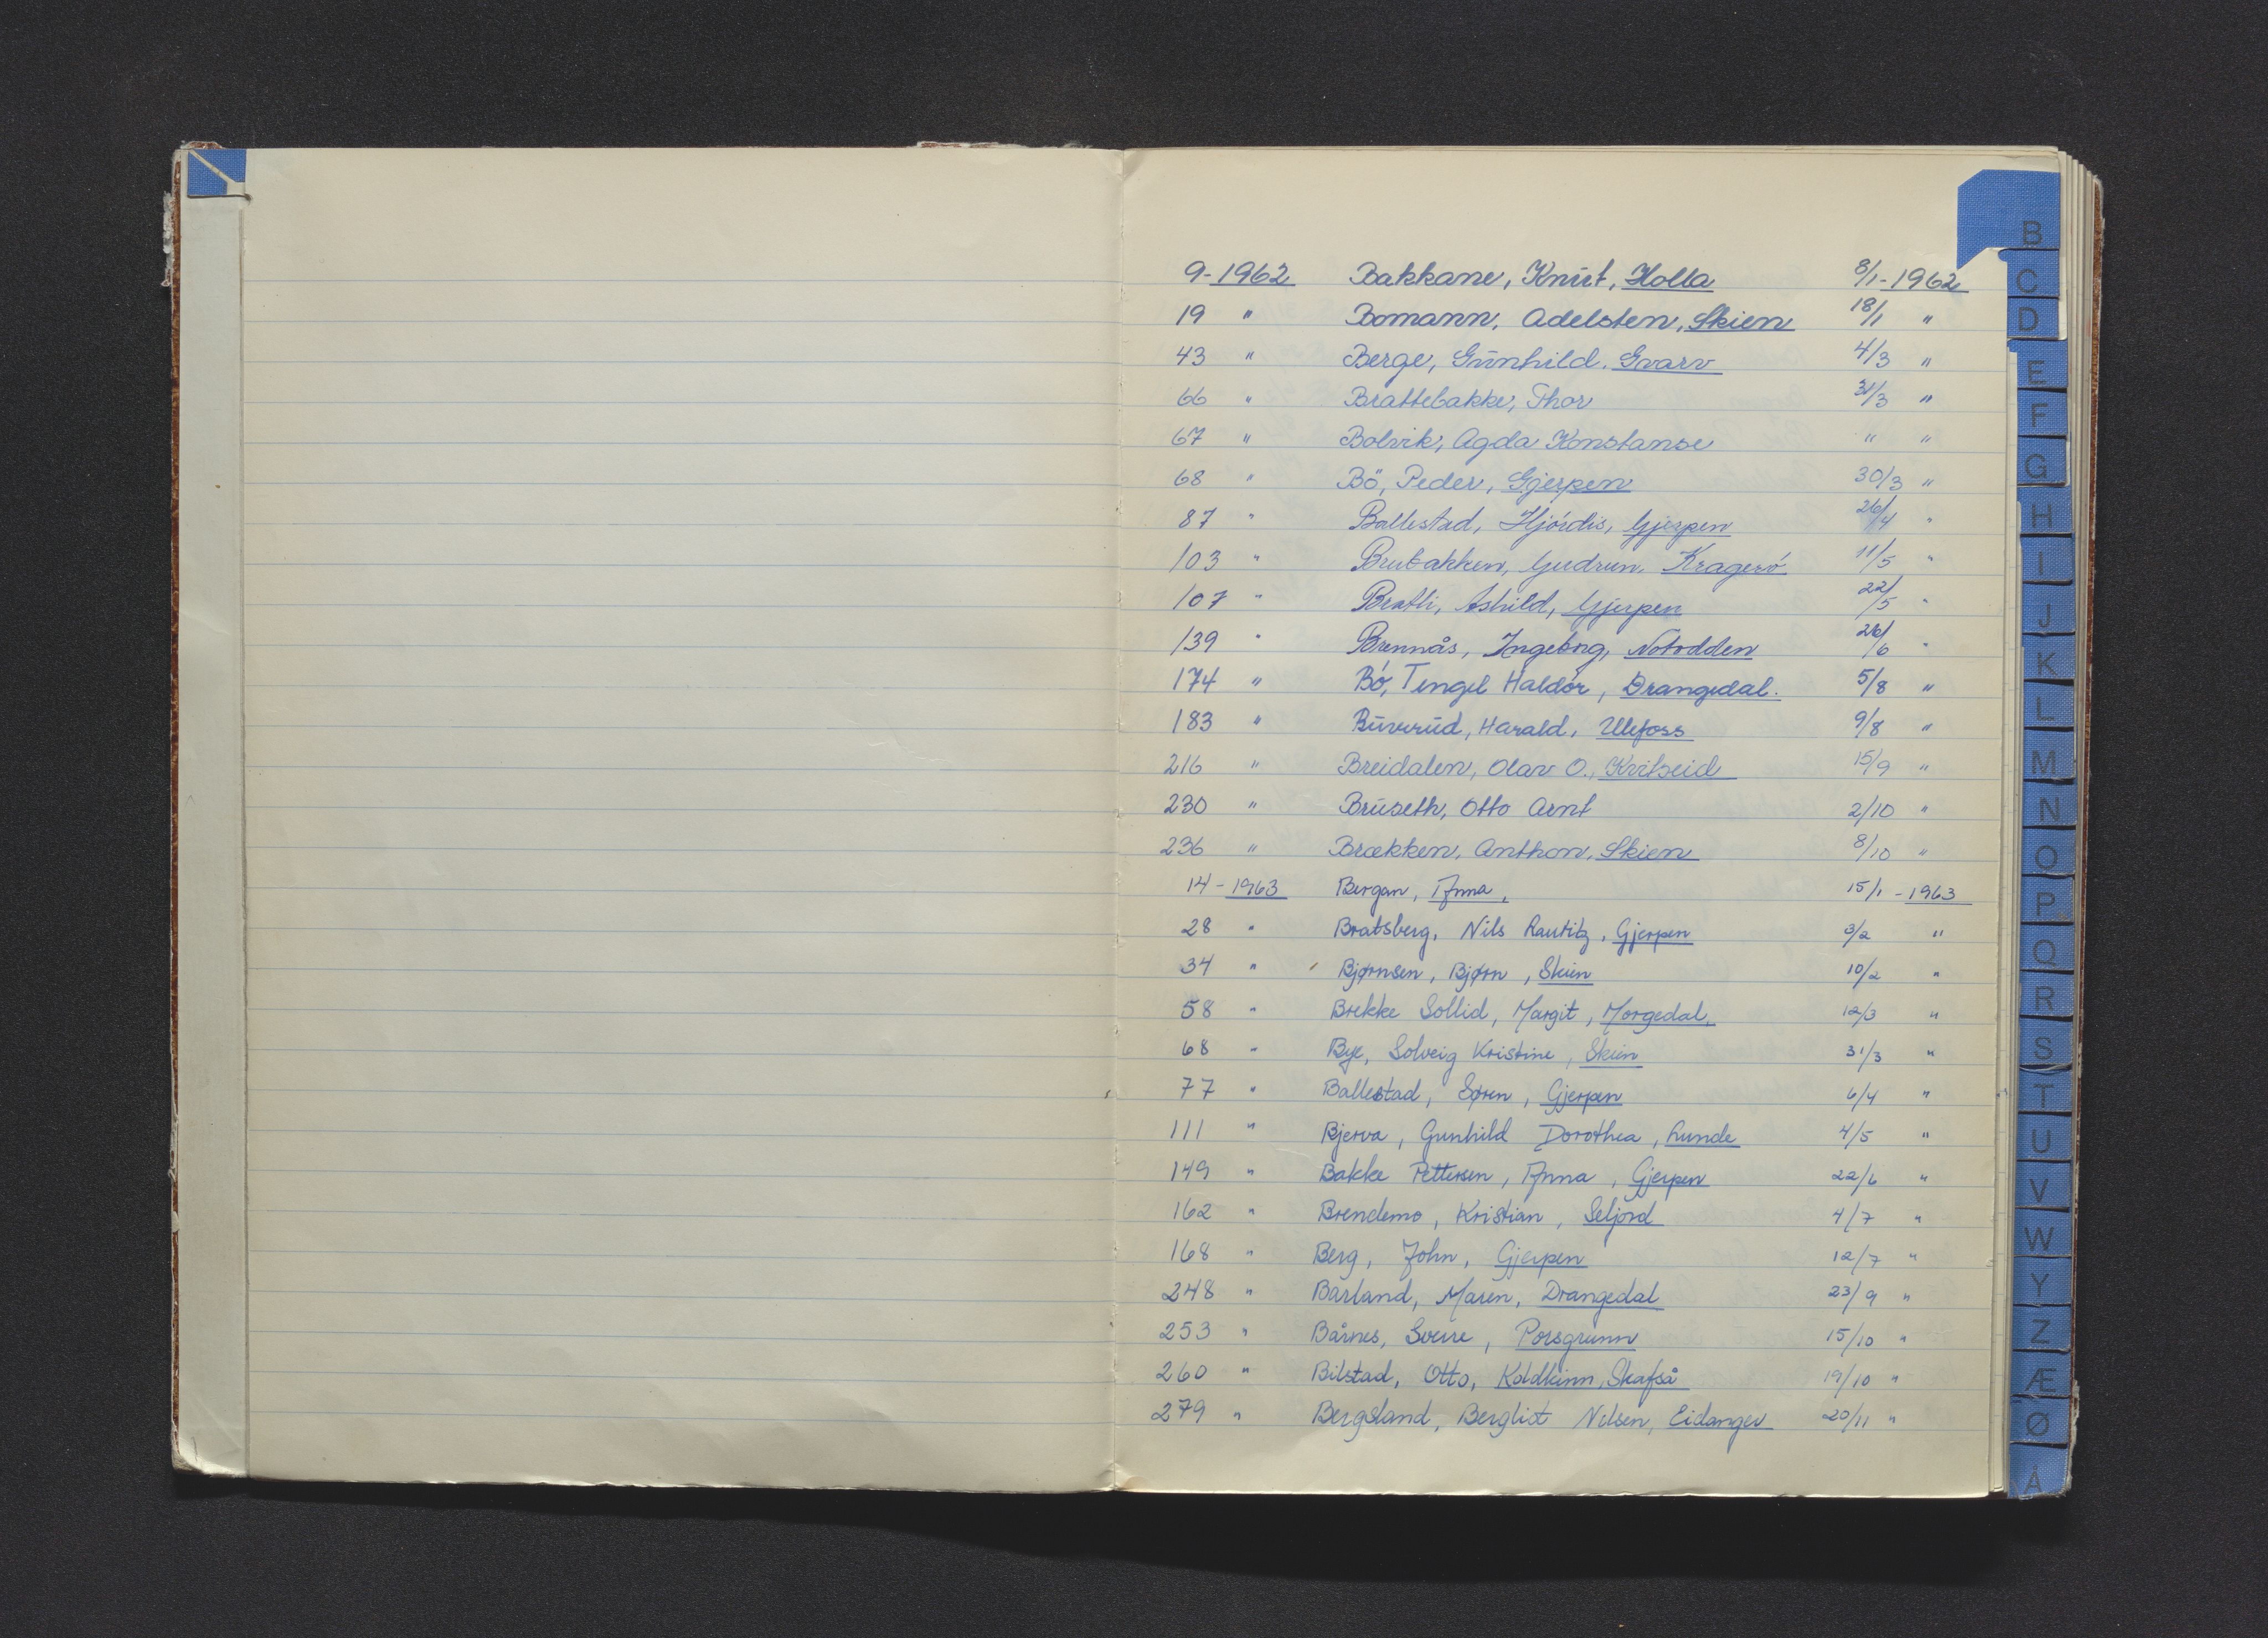 9-1962 Bakkane, Knut, Holla 8/1-1962
19 " Bomann, Adelsten, Skien 18/1 "
43 " Berge, Gunhild, Gvarv 4/3 "
66 " Brattebakke, Thor 31/3 "
67 " Bolvik, Agda Konstanse " "
68 " Bö, Peder, Gjerpen 30/3 "
87 " Ballestad, Hjördis, Gjerpen 26/4 "
103 " Brubakken, Gudrun, Kragerö 11/5 "
107 " Bratli, Åshild, Gjerpen 22/5 "
139 " Brennås, Ingeborg, Notodden 26/6 "
174 " Bö, Tengel Haldor, Drangedal. 5/8 "
183 " Buverud, Harald, Ulefoss 9/8 "
216 " Breidalen, Olav O., Kvitseid 15/9 "
230 " Bruseth, Otto Arnt 2/10 "
236 " Brækken, Anthon, Skien 8/10 "
14-1963 Bergan, Anna, 15/1-1963
28 " Bratsberg, Nils Rautitz, Gjerpen 9/2 "
34 " Bjørnsen, Bjørn, Skien 10/2 "
58 " Brekke Sollid, Margit, Morgedal, 12/3 "
68 " Bye, Solveig Kristine, Skien 31/3 "
77 " Ballestad, Søren, Gjerpen 6/4 "
111 " Bjerva, Gunhild Dorothea, Lunde 4/5 "
149 " Bakke Pettersen, Anna, Gjerpen 22/6 "
162 " Brendemo, Kristian, Seljord 4/7 "
168 " Berg, John, Gjerpen 12/7 "
248 " Barland, Maren, Drangedal 23/9 "
253 " Bårnes, Sverre, Porsgrunn 15/10 "
260 " Bilstad, Otto, Koldkinn, Skafså 19/10 "
279 " Bergsland, Bergliot Nilsen, Eidanger 20/11 "
B
C
D
E
F
G
H
I
J
K
L
M
N
O
P
Q
R
S
T
U
V
W
Y
Z
Æ
Ø
Å